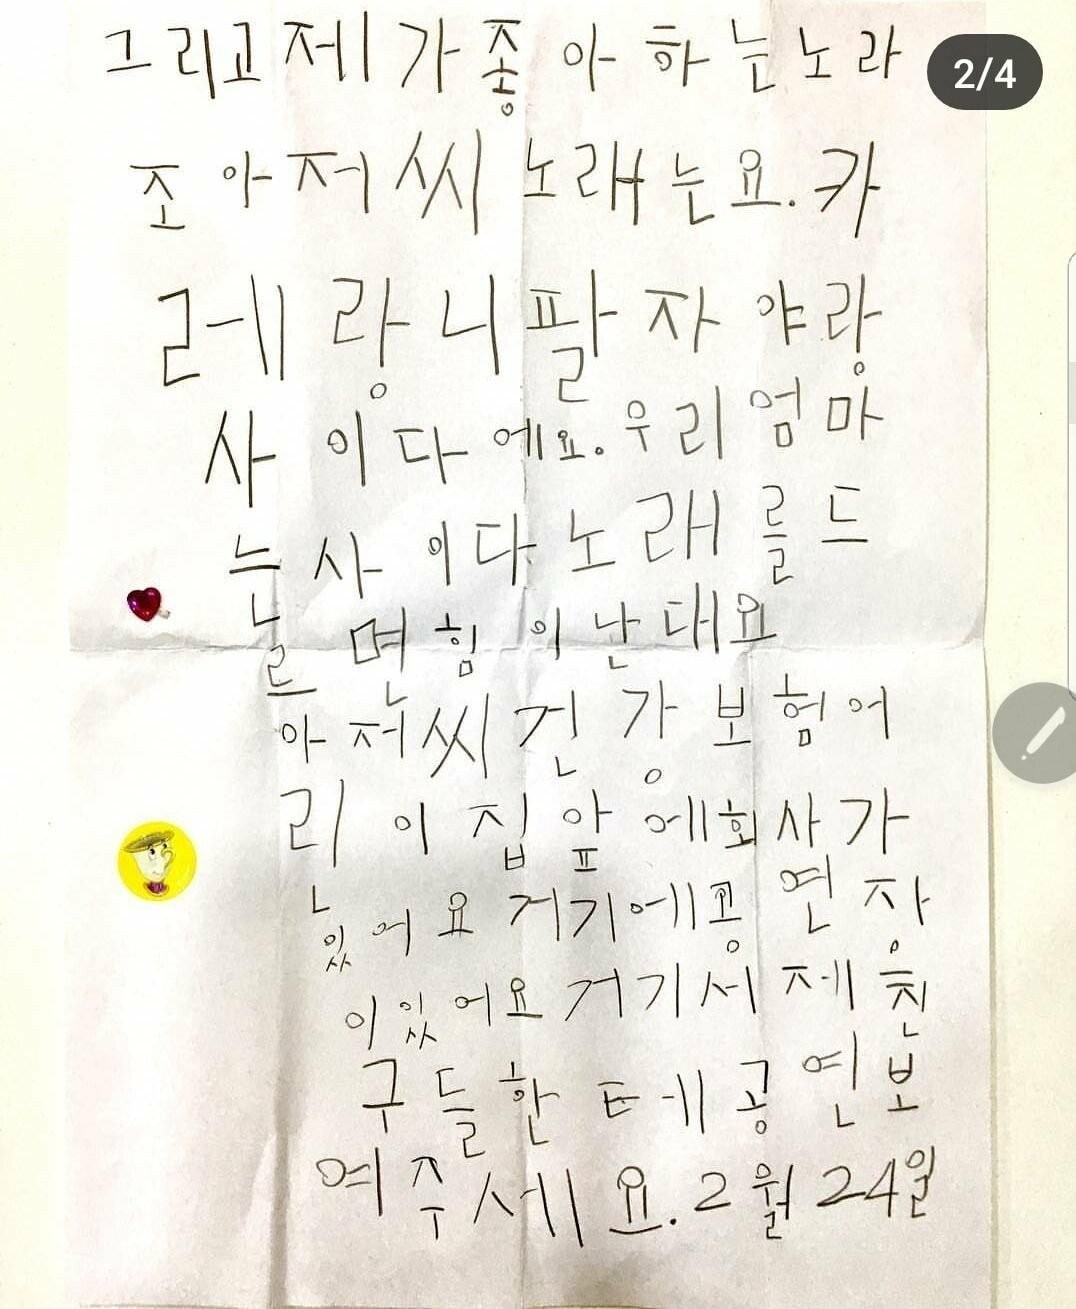 그리고 제가 좋아하는 노라
2/4
조 아저씨 노래는요. 카
레랑 니팔자야랑
사이다에요. 우리 엄마
는 사이다 노래를 드
르면 힘이 난대요
아저씨 건강보험어
린이집 앞에 회사가
있어요 거기에 공연장
이 있어요 거기서 제 친
구들한테 공연 보
여주세요. 2월 24일